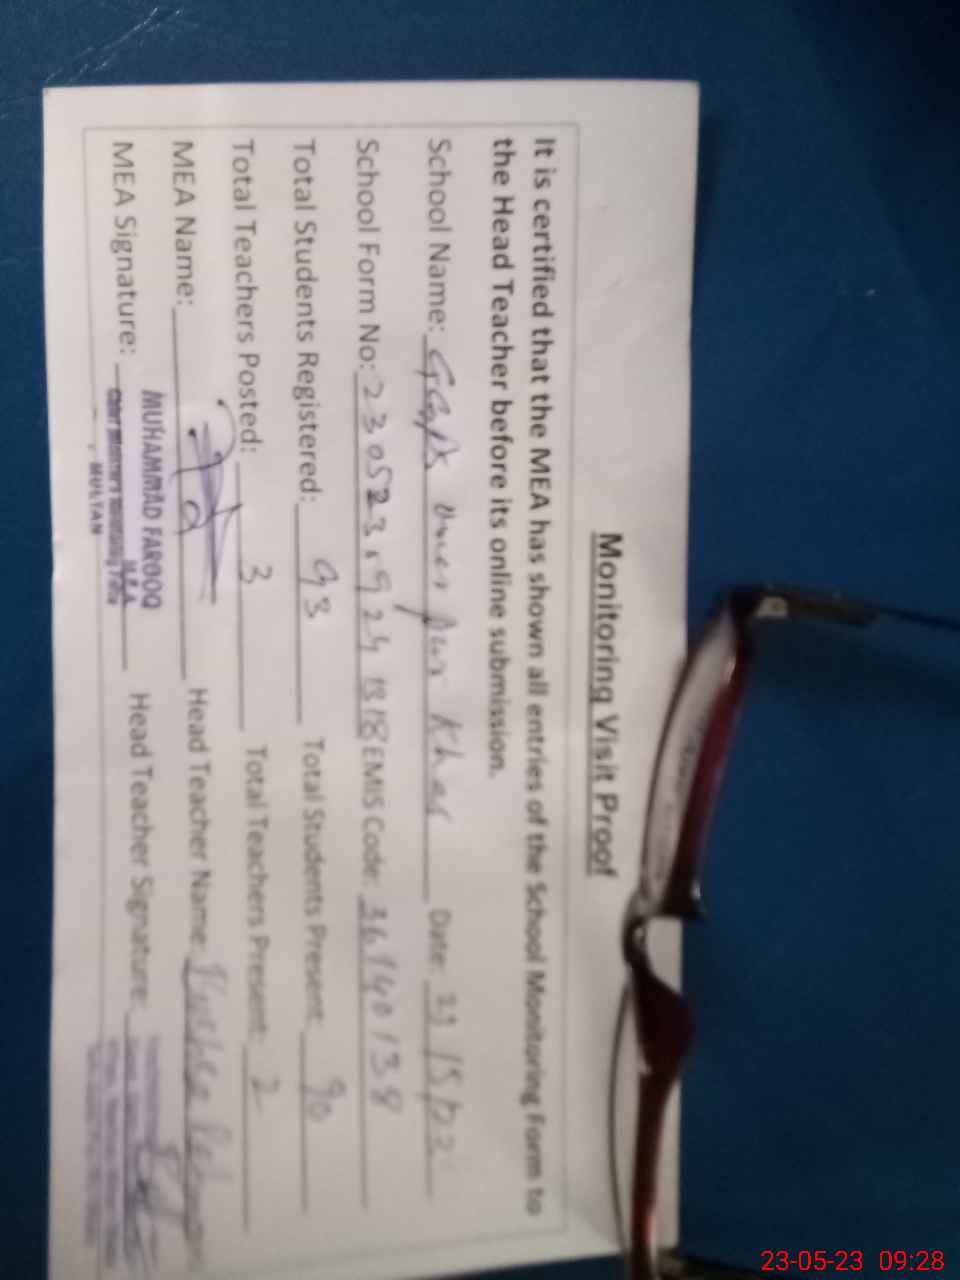 Monitoring Visit Proof
It is certified that the MEA has shown all entries of the School Monitoring Form to
the Head Teacher before its online submission.
School Name: Khas Date: 23/5/
School Form No: EMIS Code: 36140138
Total Students Registered: 93 Total Students Present: 90
Total Teachers Posted: 3 Total Teachers Present: 2
MEA Name: Head Teacher Name:
MEA Signature: Head Teacher Signature:
MUHAMMAD FAROOQ
M.E.A
MULTAN
23-05-23 09:28